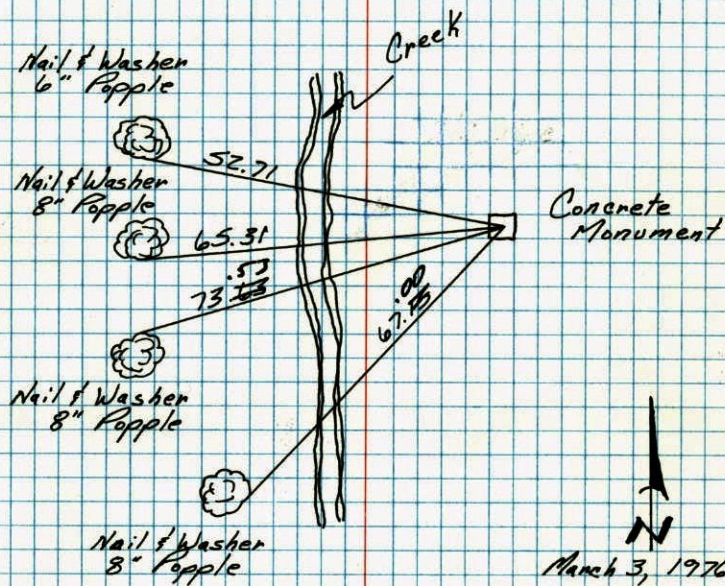 Creek
Nail & Washer
6" Popple
52.71
Nail & Washer
8" Popple
65.31
Concrete
Monument
.53
73.63
.00
67.
Nail & Washer
8" Popple
Nail & Washer
8" Popple
N
March 3, 1976